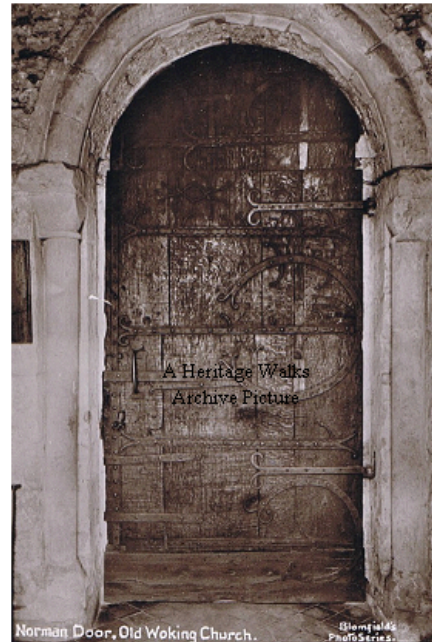 A Heritage Walks
Archive Picture
Norman Door, Old Woking Church.
Blomfield's
PhoTo Series.